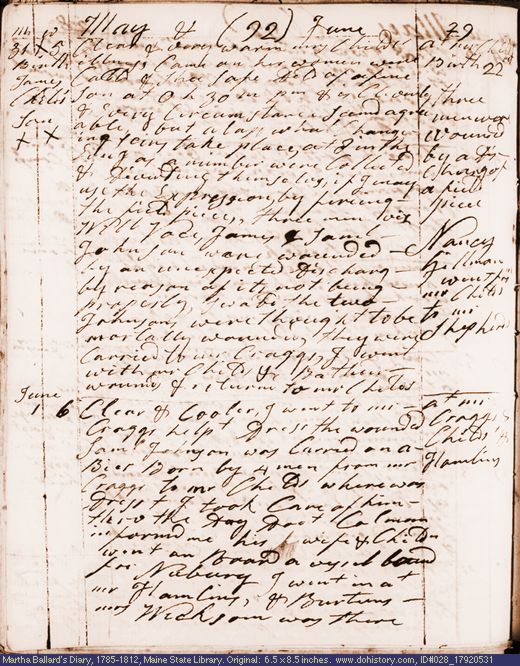 May & (92) June 29
31 X 5 Clear & very warm mrs Childs at mr Childs
Birth illness Came on her women were Birth 22nd
James Calld & shee safe Dld of a fine
Childs son at 0 h 30 m pm & is Cleverly three
Son & Every Circumstance seemd agre men were
X X able, but alas what change wound
ing seins take place, at 3 in the by a dis
Eving as a number were Collected Charg of
& Diverting themselves, if I may a field
use the Expression, by fireing piece
the field pieces, three men viz
Will Jack, James & Saml Nancy
Johnson were wounded Gillman
by an unexpected Discharg went from
by reason of its not being mr Childs
properly swabd the two to mr
Johnsons were thought to be Shepherds
mortally wounded, they were
Carried to mr Craggs, I went
with mr Childs & Bathed
wounds & returnd to mr Childs
June
1 6 Clear & Cooler, I went to mr at mr
Craggs help't Dress the wounded Craggs &
Saml Johnson was Carried on a Childs &
Bier Born by 4 men from mr Hamlins
Craggs to mr Childs where was
Drest & I took Care of him
thro the Day Doct Colman
informd me his wife & Childn
went on Board a vessel bound
for Nubury I went in at
mr Hamlins, & Burtuns
mrs Wicksom was there
Martha Ballard's Diary, 1785-1812, Maine State Library. Original: 6.5 x 8.5 inches. www.dohistory.com, ID#028_17920531